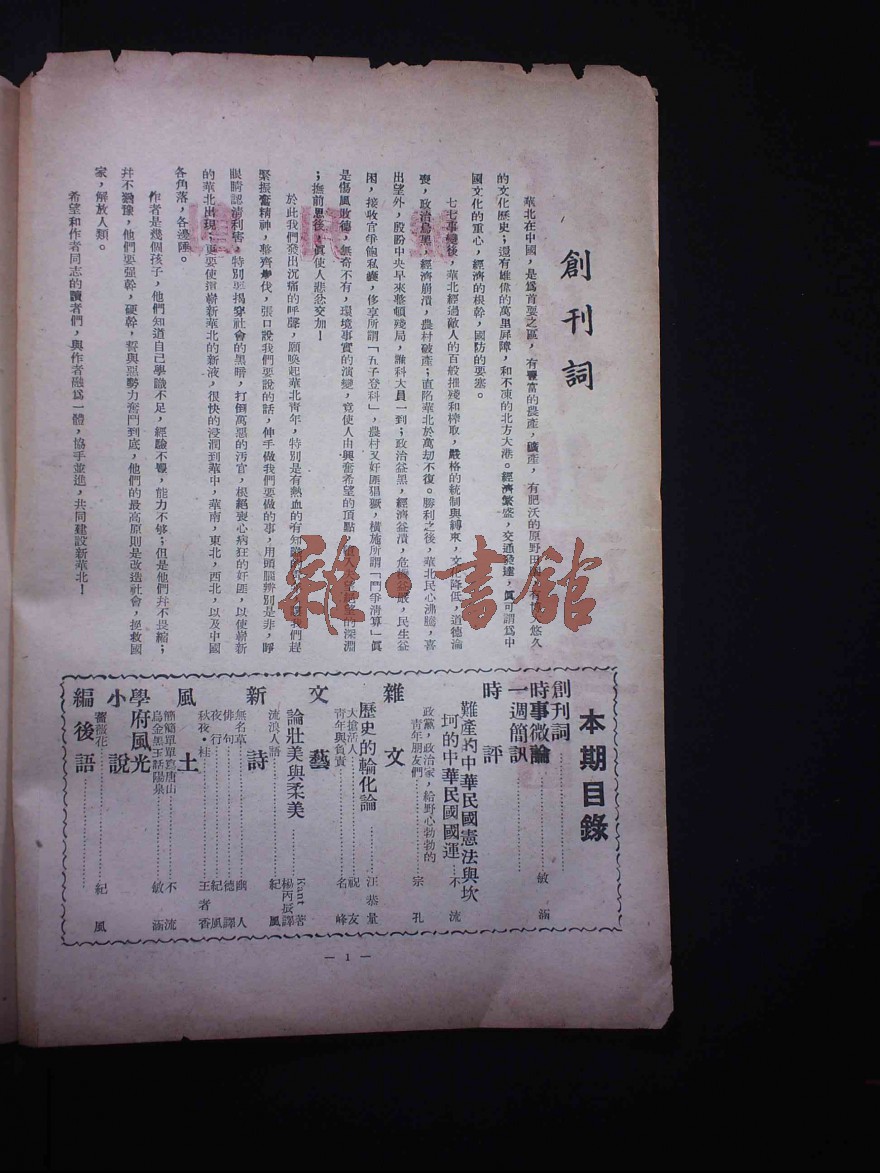 創刊詞
華北在中國,是爲首要之區,有豐富的農產,礦產,有肥沃的原野田
的文化歷史;還有雄偉的萬里屛障,和不凍的北方大港。經濟繁盛,交通發達,眞可謂爲中
國文化的重心,經濟的根幹,國防的要塞。
七七事變後,華北經過敵人的百般摧殘和榨取,嚴格的統制與縛束,文化降低,道德淪
喪,政治烏黑,經濟崩潰,農村破產;直陷華北於萬刧不復。勝利之後,華北民心沸騰,喜
出望外,殷盼中央早來整頓殘局,誰料大員一到;政治益黑,經濟益潰,危機益嚴,民生益
困,接收官爭飽私囊,侈享所謂「五子登科」,農村又奸匪猖獗,橫施所謂「鬥爭清算」眞
是傷風敗德,無奇不有,環境事實的演變,竟使人由興奮希望的頂點,墮入失望的深淵
;撫前思後,眞使人悲忿交加!
於此我們發出沉痛的呼聲,願喚起華北靑年,特別是有熱血的有知識的靑年,讓我們趕
緊振奮精神,整齊步伐,張口說我們要說的話,伸手做我們要做的事,用頭腦辨別是非,睜
眼睛認淸利害,特別要揭穿社會的黑暗,打倒萬惡的汚官,根絕喪心病狂的奸匪,以使嶄新
的華北出現;更要使這嶄新華北的新液,很快的浸潤到華中,華南,東北,西北,以及中國
各角落,各邊陲。
作者是幾個孩子,他們知道自己學識不足,經驗不豐,能力不够;但是他們幷不畏縮;
幷不猶豫,他們要强幹,硬幹,誓與惡勢力奮鬥到底,他們的最高原則是改造社會,挽救國
家,解放人類。
希望和作者同志的讀者們,與作者融爲一體,協手並進,共同建設新華北!
本期目錄
創刊詞
時事微論 敏涵
一週簡訊
時評
難產的中華民國憲法與坎
坷的中華民國國運 不流
政黨,政治家,給野心勃勃的
靑年朋友們 宗孔
雜文
歷史的輪化論 汪恭量
大搶活人 祝友
靑年與負責 名峰
文藝
論壯美與柔美 Kant著
楊丙辰譯
流浪人語 紀風
新詩
無名草 幽人
俳句 德譯
夜行 紀風
秋夜·桂 王者香
風土
簡簡單單寫唐山 不流
烏金黑玉話陽泉 敏涵
學府風光
小說
薔薇花 紀風
編後語
— 1 —
雜·書館